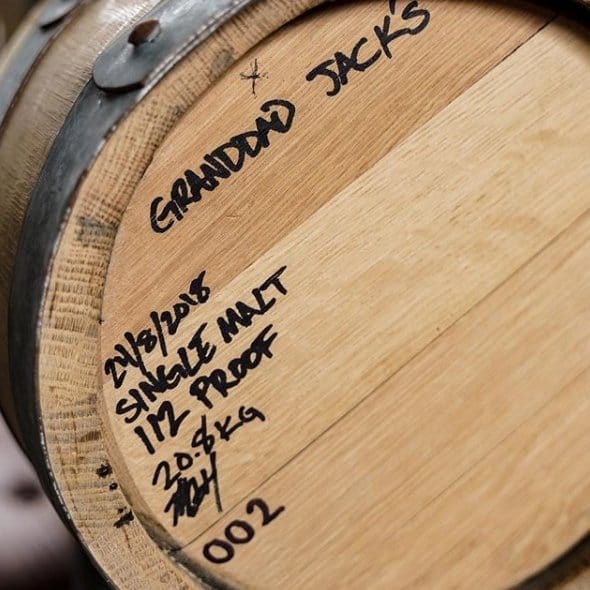 GRANDDAD JACK'S
24/8/2018
SINGLE MALT
112 PROOF
20.8 KG
002